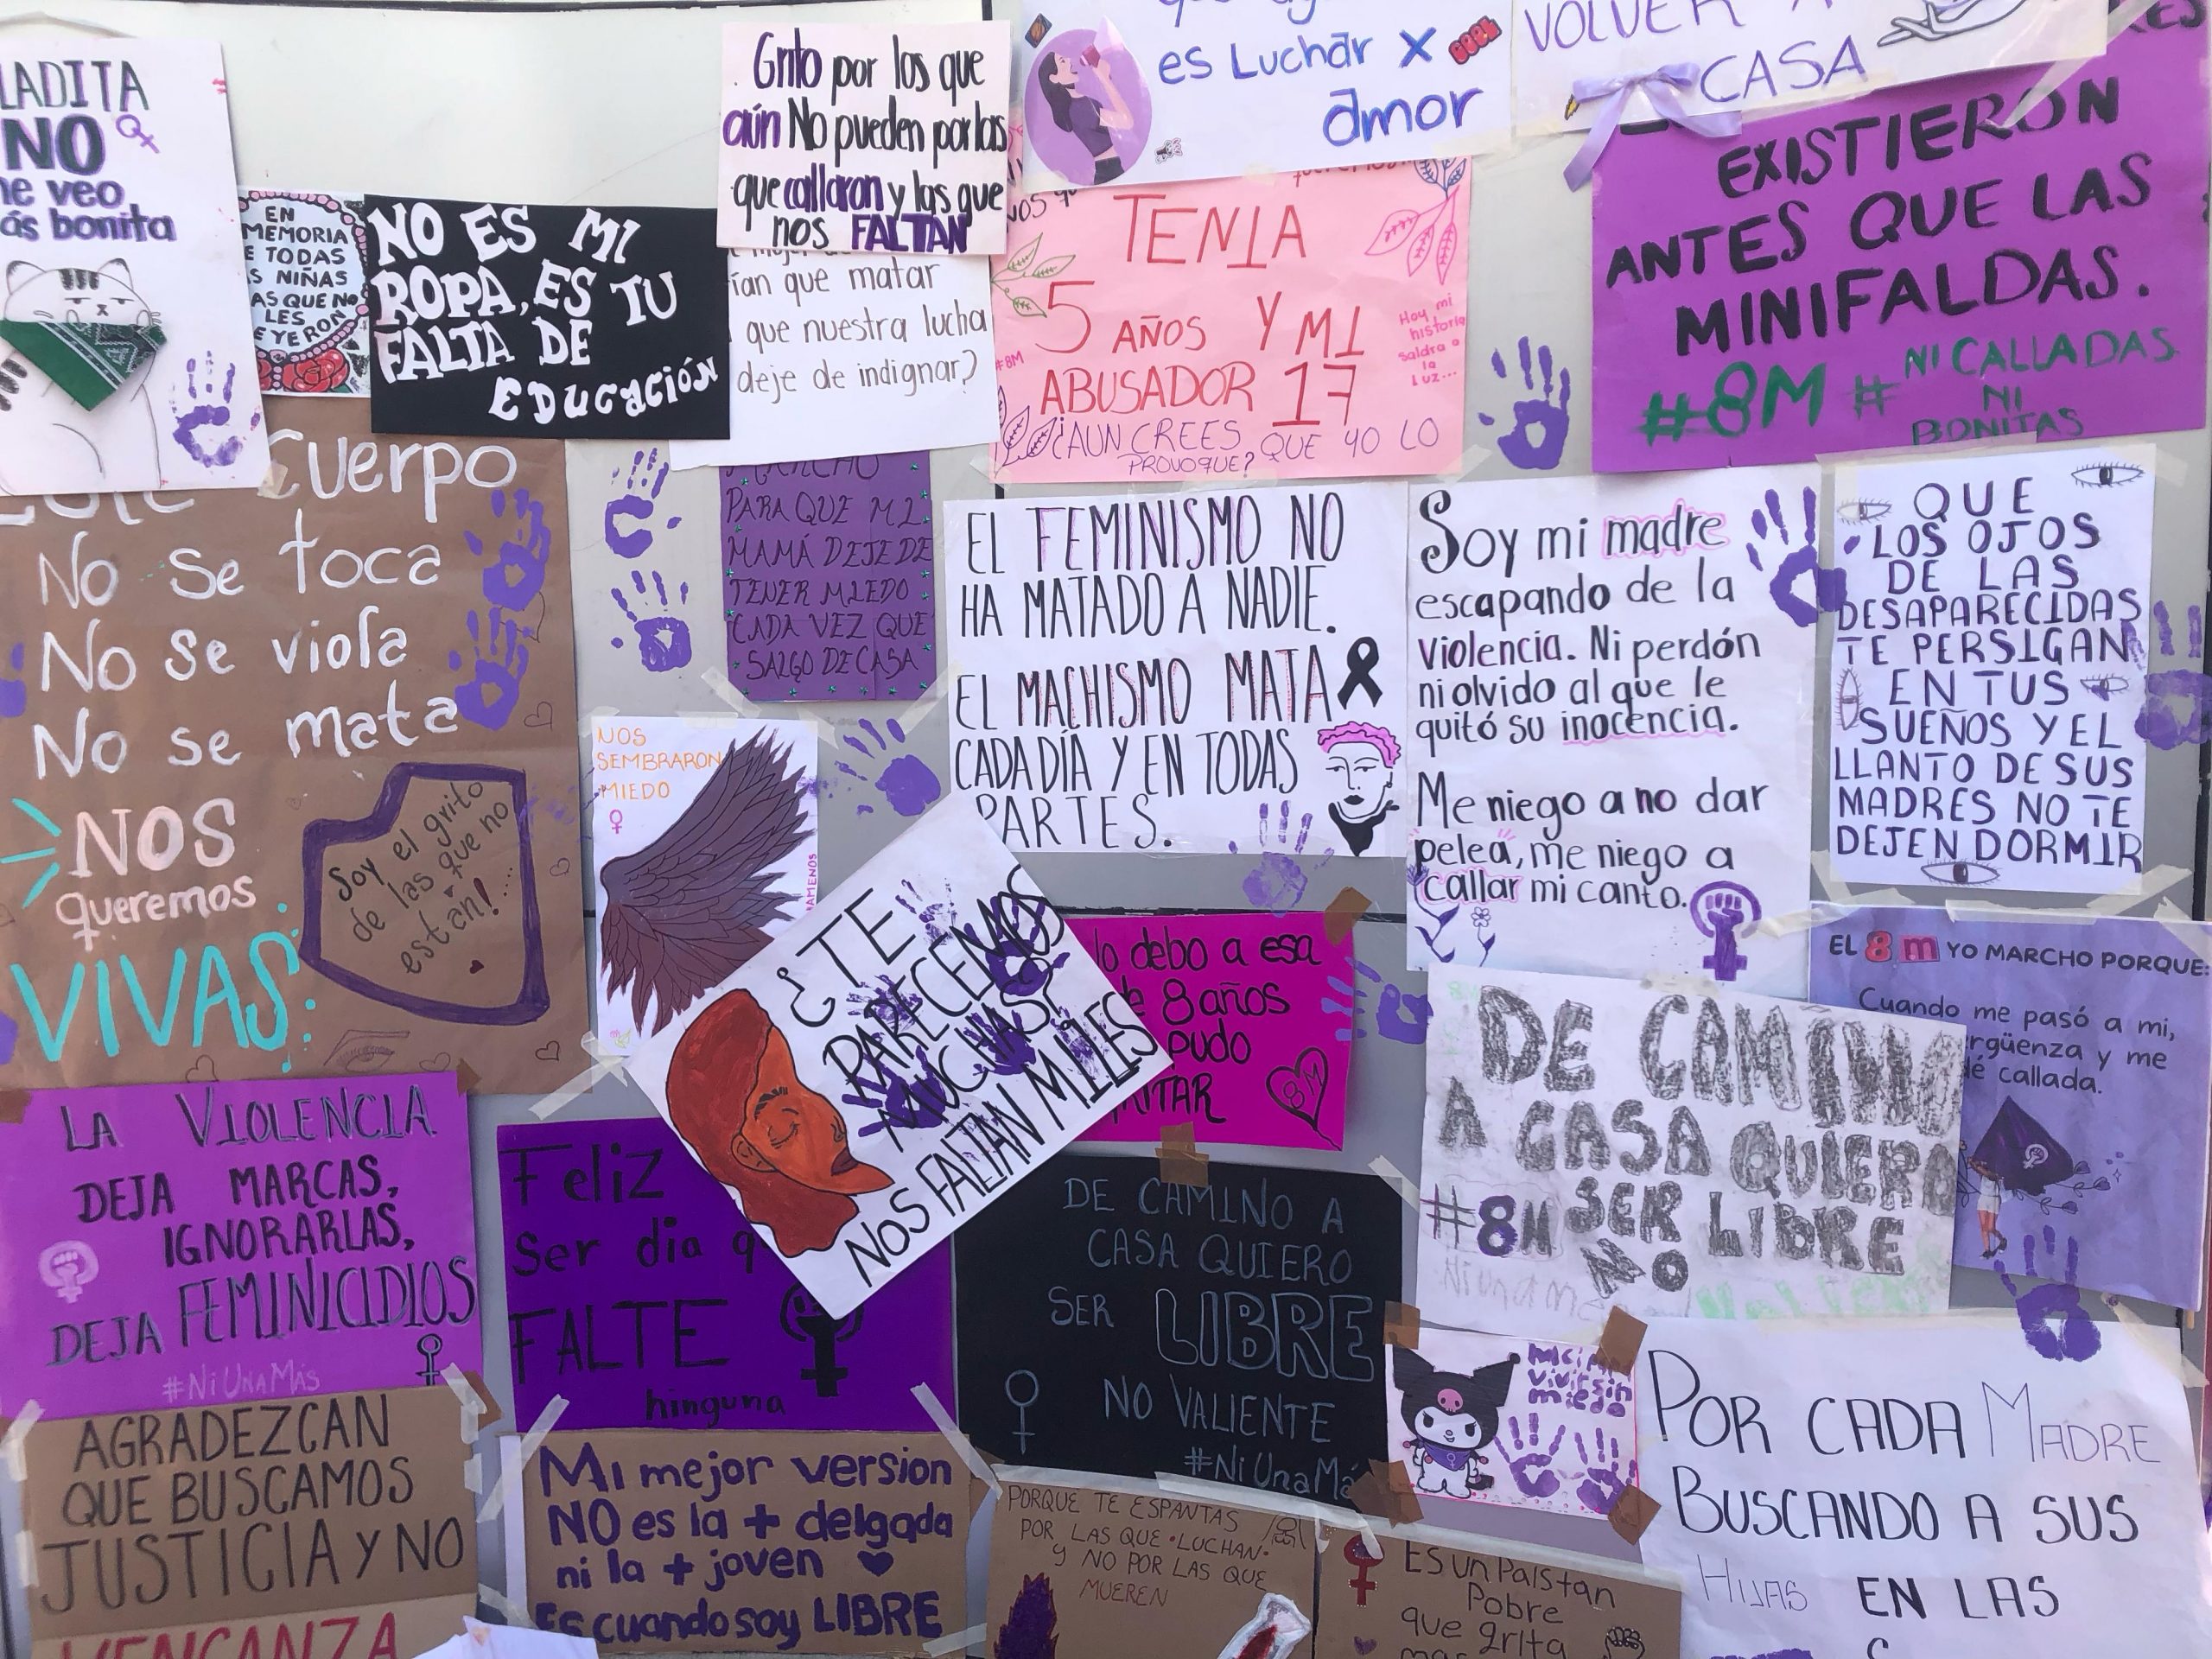 LADITA
NO
me veo
ás bonita
EN
MEMORIA
E TODAS
S NIÑAS
AS QUE NO
LES
EYERON
NO ES MI
ROPA, ES TU
FALTA DE
EDUCACIÓN
Grito por las que
aún No pueden por las
que callaron y las que
nos FALTAN
ían que matar
que nuestra lucha
deje de indignar?
es Luchar X
amor
VOLVER A
CASA
TENIA
5 AÑOS Y MI
ABUSADOR 17
¿AUN CREES QUE YO LO
PROVOQUE?
#8M
Hoy mi
historia
saldra a
la
luz...
EXISTIERON
ANTES QUE LAS
MINIFALDAS.
#8M # NI CALLADAS
NI
BONITAS
cuerpo
No se toca
No se viola
No se mata
NOS
queremos
VIVAS
Soy el grito
de las que no
estan!....
PARA QUE MI
MAMÁ DEJE DE
TENER MIEDO
CADA VEZ QUE
SALGO DE CASA
EL FEMINISMO NO
HA MATADO A NADIE.
EL MACHISMO MATA
CADA DÍA Y EN TODAS
PARTES.
Soy mi madre
escapando de la
violencia. Ni perdón
ni olvido al que le
quitó su inocencia.
Me niego a no dar
pelea, me niego a
callar mi canto.
QUE
LOS OJOS
DE LAS
DESAPARECIDAS
TE PERSIGAN
EN TUS
SUEÑOS Y EL
LLANTO DE SUS
MADRES NO TE
DEJEN DORMIR
NOS
SEMBRARON
MIEDO
¿TE
PARECEMOS
MUCHAS?
NOS FALTAN MILES
lo debo a esa
de 8 años
pudo
GRITAR
8M
EL 8m YO MARCHO PORQUE:
Cuando me pasó a mi,
rgüenza y me
é callada.
DE CAMINO
A CASA QUIERO
#8M SER LIBRE
NO
LA VIOLENCIA
DEJA MARCAS,
IGNORARLAS,
DEJA FEMINICIDIOS
#NiUnaMás
Feliz
Ser dia q
FALTE
ninguna
DE CAMINO A
CASA QUIERO
SER LIBRE
NO VALIENTE
#NiUnaMá
vivir sin
miedo
AGRADEZCAN
QUE BUSCAMOS
JUSTICIA Y NO
VENGANZA
Mi mejor version
NO es la + delgada
ni la + joven
Es cuando soy LIBRE
PORQUE TE ESPANTAS
POR LAS QUE LUCHAN
Y NO POR LAS QUE
MUEREN
Es un Pais tan
Pobre
que grita
mas
POR CADA MADRE
BUSCANDO A SUS
HIJAS EN LAS